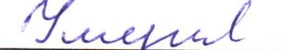 Умерил